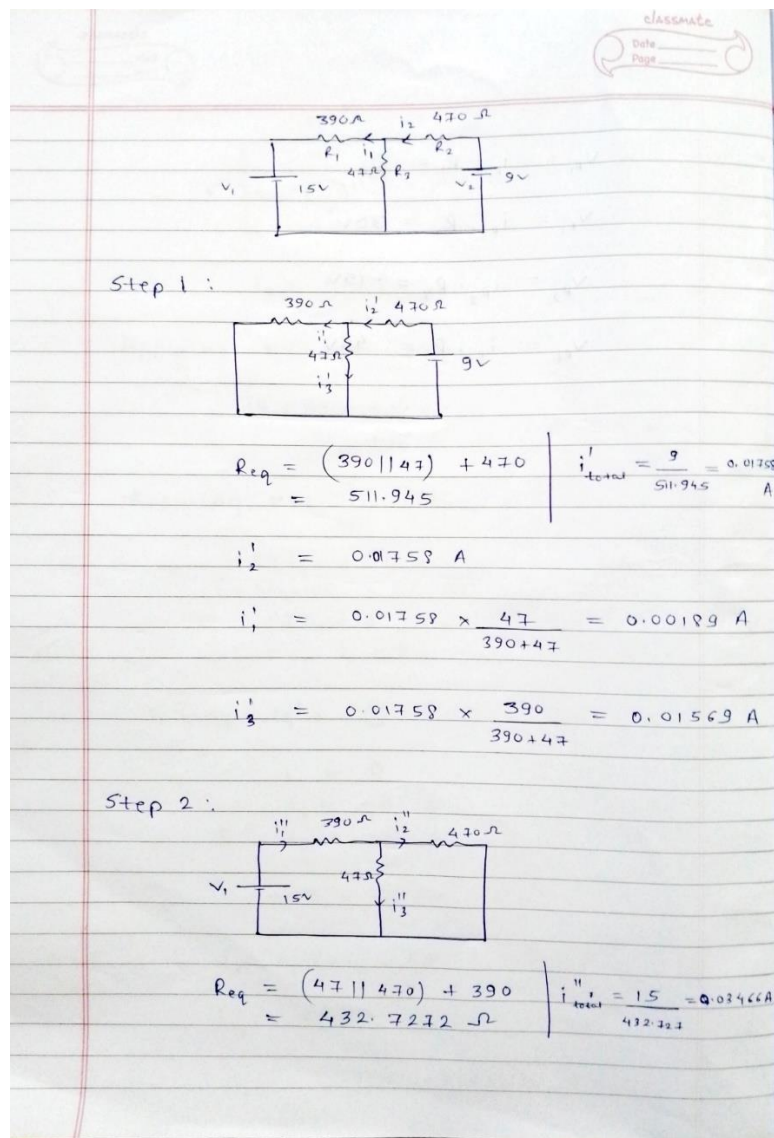 classmate
Date
Page
390Ω i2 470Ω
R1 i1 R2
47Ω R3
V1 15V V2 9V
Step 1 :
390Ω i2' 470Ω
i1'
47Ω 9V
i3'
Req = (390||47) + 470 i'total = 9/511.945 = 0.01758 A
= 511.945
i2' = 0.01758 A
i1' = 0.01758 × 47/390+47 = 0.00189 A
i3' = 0.01758 × 390/390+47 = 0.01569 A
Step 2 :
i1'' 390Ω i2'' 470Ω
47Ω
V1 15V i3''
Req = (47||470) + 390 i''total = 15/432.727 = 0.03466A
= 432.7272 Ω